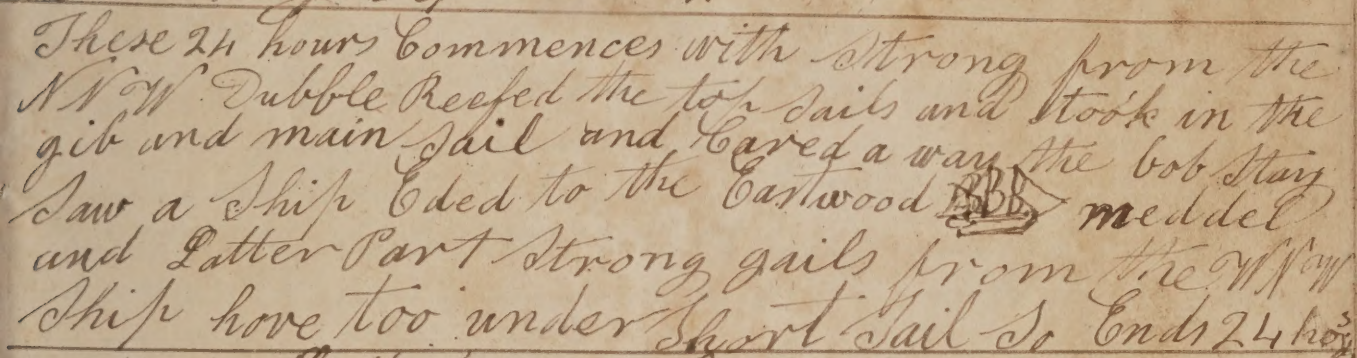 These 24 hours Commences with Strong from the
NNW Dubble Reefed the top Sails and took in the
gib and main Sail and Cared a way the bob Stay
Saw a Ship Eded to the Eastwood meddel
and Latter Part Strong gails from the WNW
Ship hove too under Short Sail So Ends 24 hos